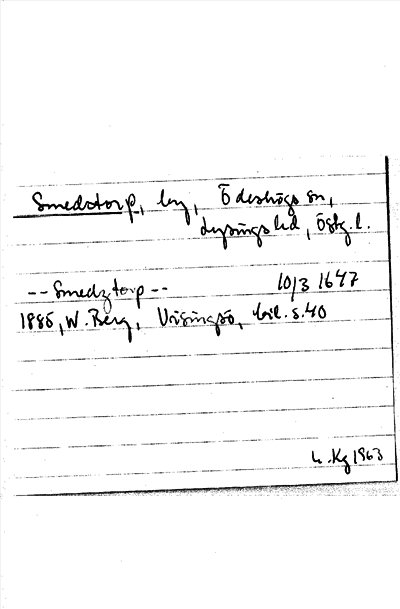 Smedstorp, by, Ödeshögs sn,
Lysings hd, Östg. l.
-- Smedztorp -- 10/3 1647
1885, W. Berg, Visingsö, bil. s. 40
L. Kg 1963